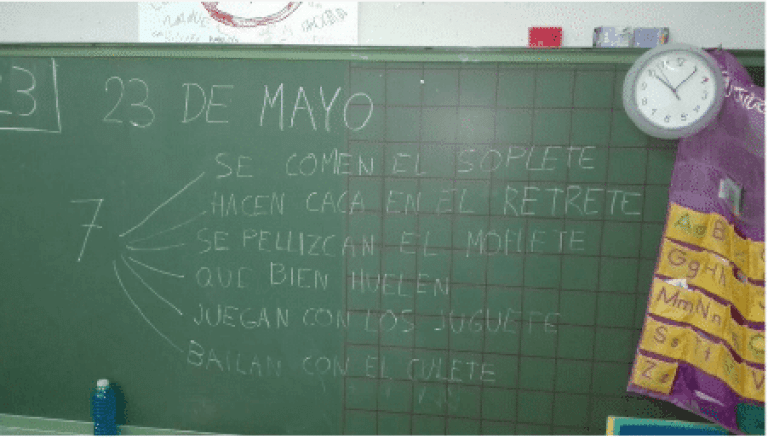 23
23 DE MAYO
7
SE COMEN EL SOPLETE
HACEN CACA EN EL RETRETE
SE PELLIZCAN EL MOFLETE
QUE BIEN HUELEN
JUEGAN CON LOS JUGUETE
BAILAN CON EL CULETE
A B
Gg Hh
Mm Nn
S
Z